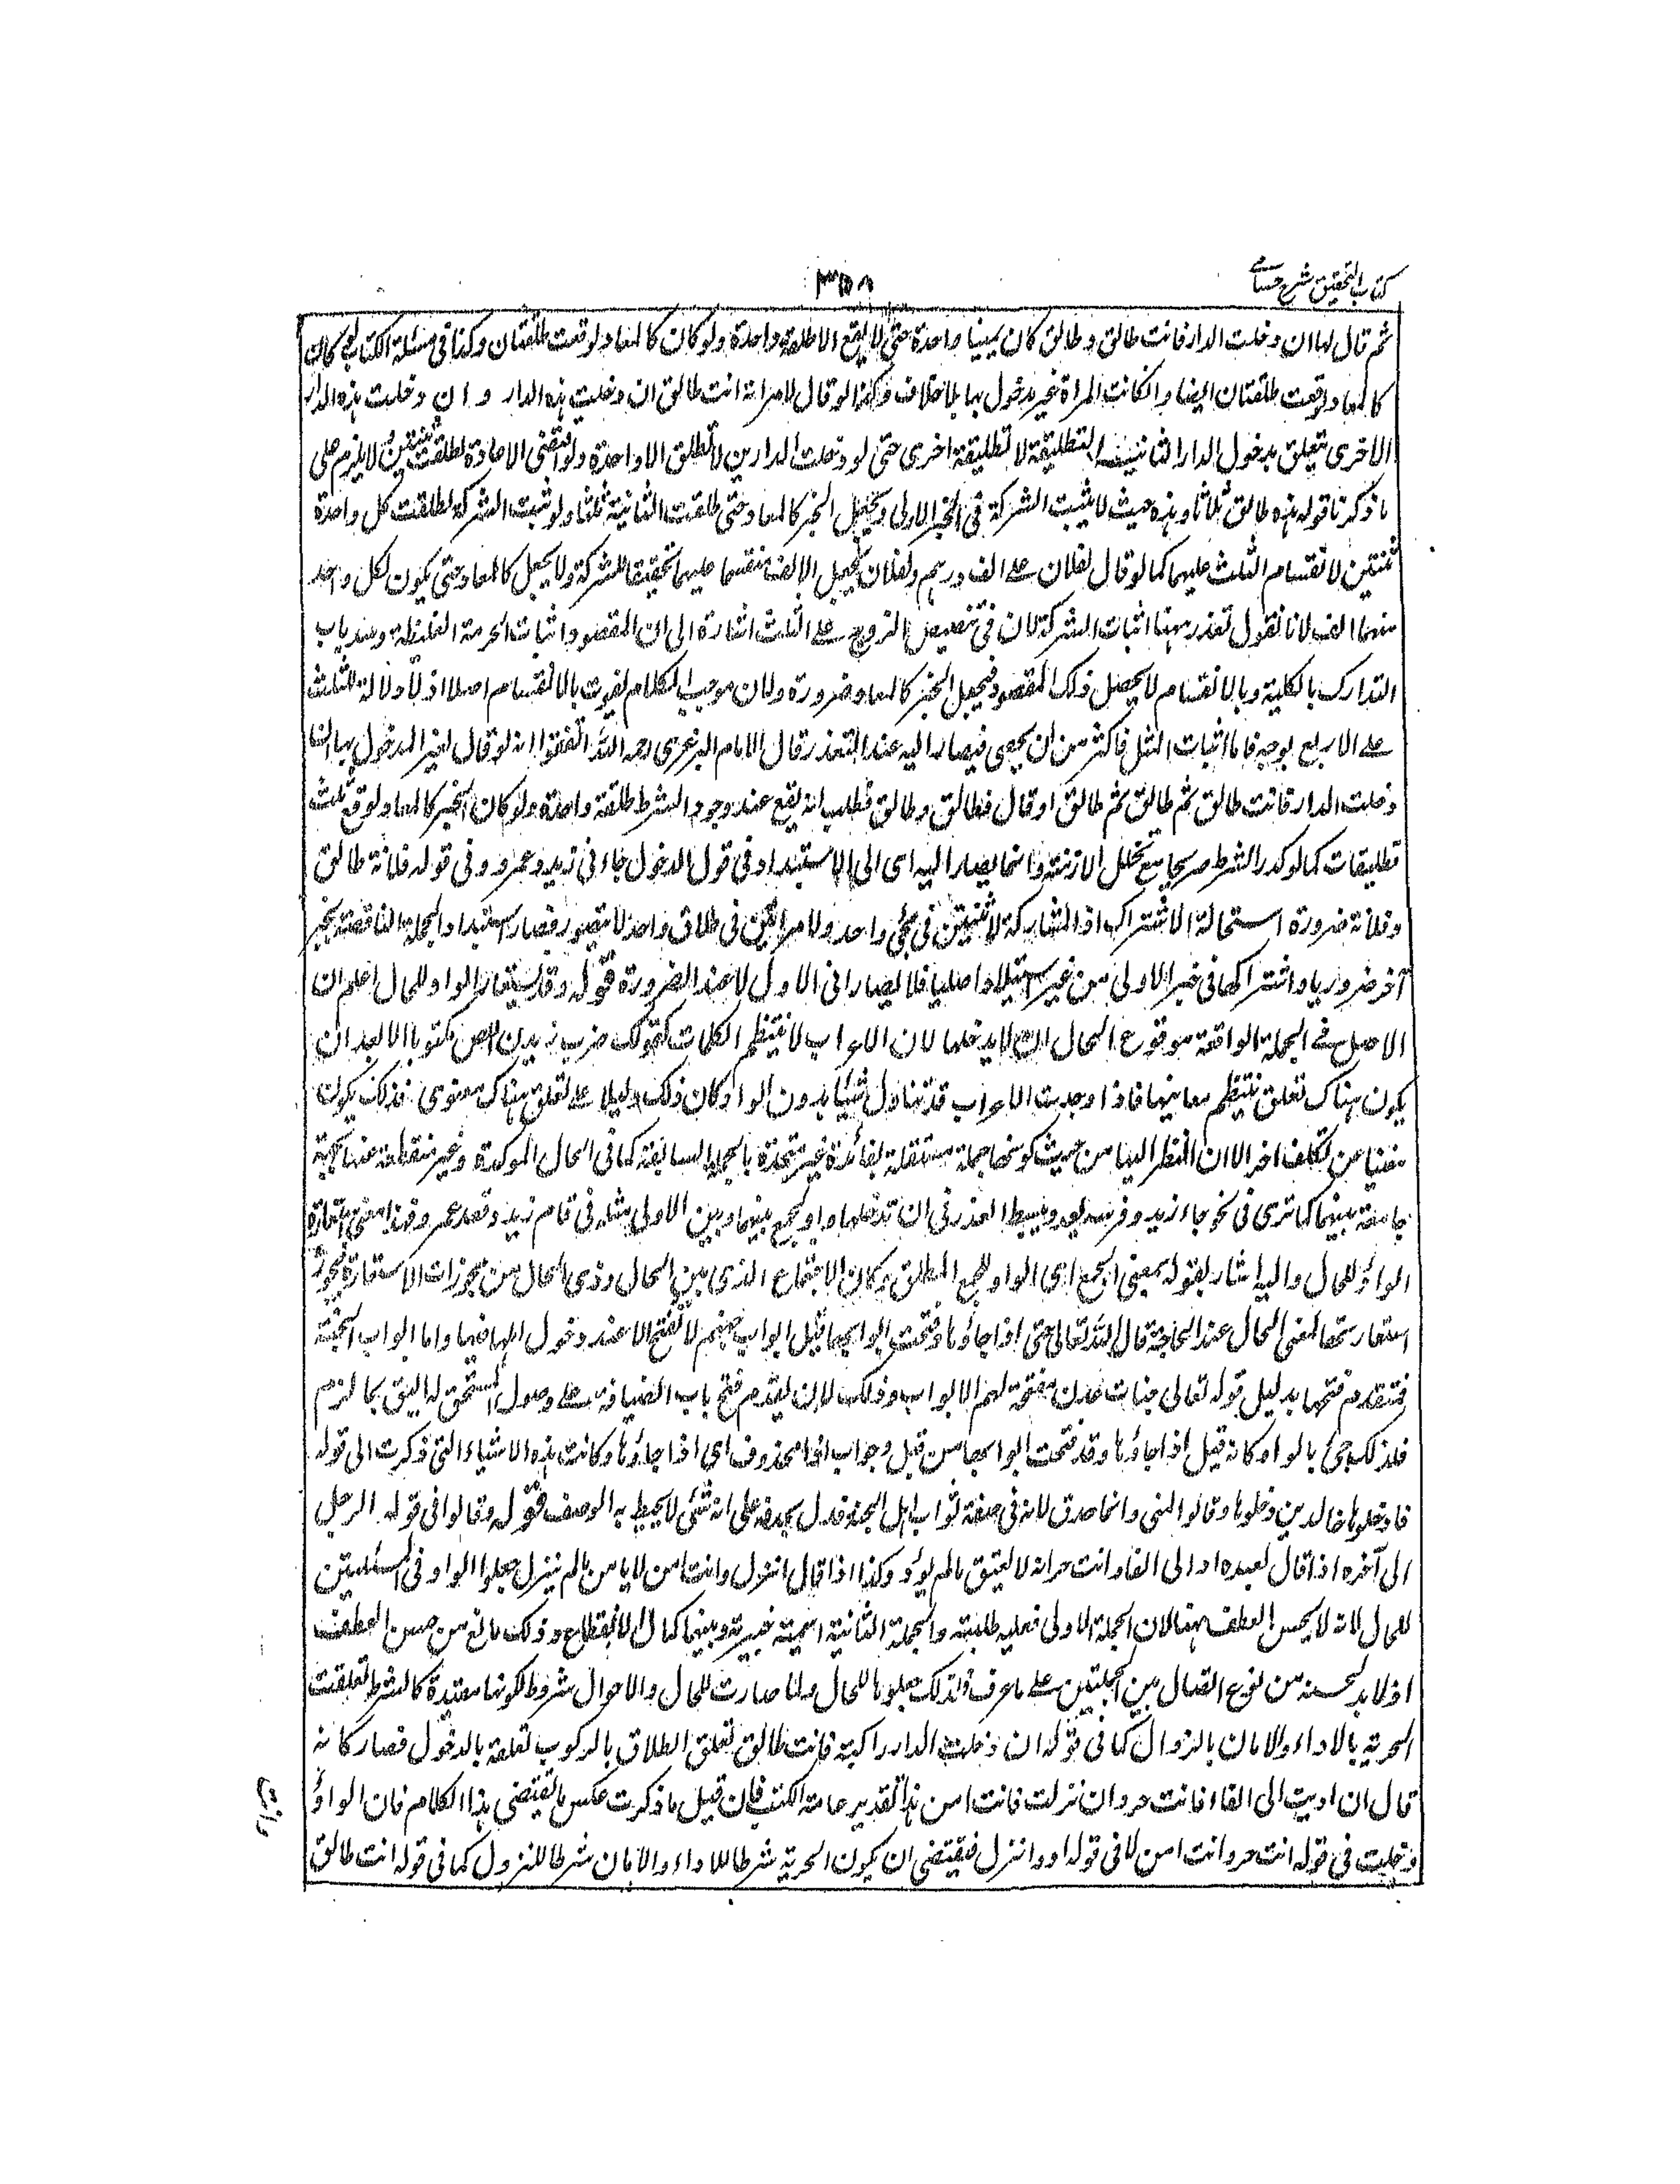 كتاب التحقيق شرح حسامے
٣٥٨
ثم قال لها ان دخلت الدار فانت طالق وطالق كان يمينا واحدة حتى لا يقع الا طلقة واحدة ولو كان كالمعاد لوقعت طلقتان وكذا فى مسئلة الكتاب لو كان
كالمعاد لوقعت طلقتان ايضا وانكانت المراة غير مدخول بها بلا خلاف وكذا لو قال لامراته انت طالق ان دخلت هذه الدار وان دخلت هذه الدار
الاخرى يتعلق بدخول الدار الثانية التطليقة لا تطليقة اخرى حتى لو دخلت الدارين لا تطلق الا واحدة ولو اقتضى الاعادة لطلقت ثنتين لا يلزم على
ما ذكرنا قوله هذه طالق ثلاثا وهذه حيث لا يثبت الشركة فى الخبر الاولى ويجعل الخبر كالمعاد حتى طلقت الثانية ثلثا ولو ثبت الشركة لطلقت كل واحدة
ثنتين لانقسام الثلث عليهما كما لو قال لفلان علے الف درهم ولفلان يجعل الالف منقسما عليهما تحقيقا للشركة ولا يجعل كالمعاد حتى يكون لكل واحد
منهما الف لانا نقول تعذر ههنا اثبات الشركة لان فى تنصيص الزوج علے الثلث اشارة الى ان المقصود اثبات الحرمة الغليظة وسد باب
التدارك بالكلية وبالانقسام لا يحصل ذلك المقصود فيجعل الخبر كالمعاد ضرورة ولان موجب الكلام يفوت بالانقسام اصلا اذ لا دلالة للثلث
علے الاربع بوجه فاما اثبات المثل فاكثر من ان يحصى فيصار اليه عند التعذر قال الامام البرغرى رحمه الله اتفقوا انه لو قال لغير المدخول بها ان
دخلت الدار فانت طالق ثم طالق ثم طالق او قال فطالق وطالق فطلب انه يقع عند وجود الشرط طلقة واحدة ولو كان الخبر كالمعاد لوقع ثلث
تطليقات كما لو كرر الشرط صريحا مع تخلل الازمنة وانما يصار اليه اى الى الاستبداد فى قول الدخول جاءنى زيد وعمرو وفى قوله فلانة طالق
وفلانة ضرورة استحالة الاشتراك اذ المشاركة لاثنين فى مجئ واحد ولامراتين فى طلاق واحد لا يتصور فصار استبداد الجملة الناقصة بخبر
آخر ضروريا واشتراكها فى خبر الاولى من غير استبداد اصليا فلا يصار الى الاول الا عند الضرورة قوله وقد يستعار الواو للحال اعلم ان
الاصل فے الجملة الواقعة موقوع الحال ان لا يدخلها لان الاعراب لا ينتظم الكلمات كقولك ضرب زيد اللص مكتوبا الا بعد ان
يكون هناك تعلق ينتظم معانيها فاذا وجدت الاعراب قد تناول شيئا بدون الواو كان ذلك دليلا علے تعلق هناك معنوى فذلك يكون
مغنيا عن تكلف اخر الا ان النظر اليها من حيث كونها جملة مستقلة بفائدة غير متحدة بالجملة السابقة كما فى الحال الموكدة وغير منقطعة عنها كجهة
جامعة بينهما كما ترى فى نحو جاء زيد وفرسه يعدو يبسط العذر فى ان تدخلها واو يجمع بينها وبين الاولى مثله فى قام زيد وقعد عمرو فهذا معنى استعارة
الواو للحال واليه اشار بقوله بمعنى الجمع اى الواو للجمع المطلق وكان الاجتماع الذى بين الحال وذى الحال من مجوزات الاستعارة فيجوز
استعارتها لمعنى الحال عند الحاجة قال الله تعالى حتى اذا جاؤها وفتحت ابوابها قيل ابواب جهنم لا تفتح الا عند دخول اهلها فيها واما ابواب الجنة
فتقدم فتحها بدليل قوله تعالى جنات عدن مفتحة لهم الابواب وذلك لان تقدم فتح باب الضيافة علے وصول المستحق له اليق بالزم
فلذلك جئ بالواو كانه قيل اذا جاؤها وقد فتحت ابوابها من قبل وجواب اذا محذوف اى اذا جاؤها وكانت هذه الاشياء التى ذكرت الى قوله
فادخلوها خالدين دخلوها وقالوا المنى وانما حذف لانه فى صفة ثواب اهل الجنة فدل بحذفه على انه شئ لا يحيط به الوصف قوله وقالوا فى قوله الرجل
الى آخره اذا قال لعبده اد الى الفا وانت حر انه لا يعتق ما لم يؤد وكذا اذا قال انزل وانت امن لا يامن ما لم ينزل جعلوا الواو فى المسئلتين
للحال لانه لا يحسن العطف ههنا لان الجملة الاولى فعلية طلبية والجملة الثانية اسمية خبرية وبينهما كمال الانقطاع وذلك مانع من حسن العطف
اذ لا بد لحسنه من نوع اتصال بين الجملتين علے ما عرف فلذلك جعلوها للحال ولما صارت للحال والاحوال شروط لكونها مقيدة كالشرط تعلقت
الحرية بالاداء والامان بالنزول كما فى قوله ان دخلت الدار راكبة فانت طالق تعلق الطلاق بالركوب تعلقه بالدخول فصار كانه
قال ان اديت الى الفا فانت حر وان نزلت فانت امن هذا تقدير عامة الكتب فان قيل ما ذكرت عكس ما يقتضى هذا الكلام فان الواو
دخلت فى قوله انت حر وانت امن لا فى قوله اد وانزل فيقتضى ان يكون الحرية شرطا للاداء والامان شرطا للنزول كما فى قوله انت طالق
وانت